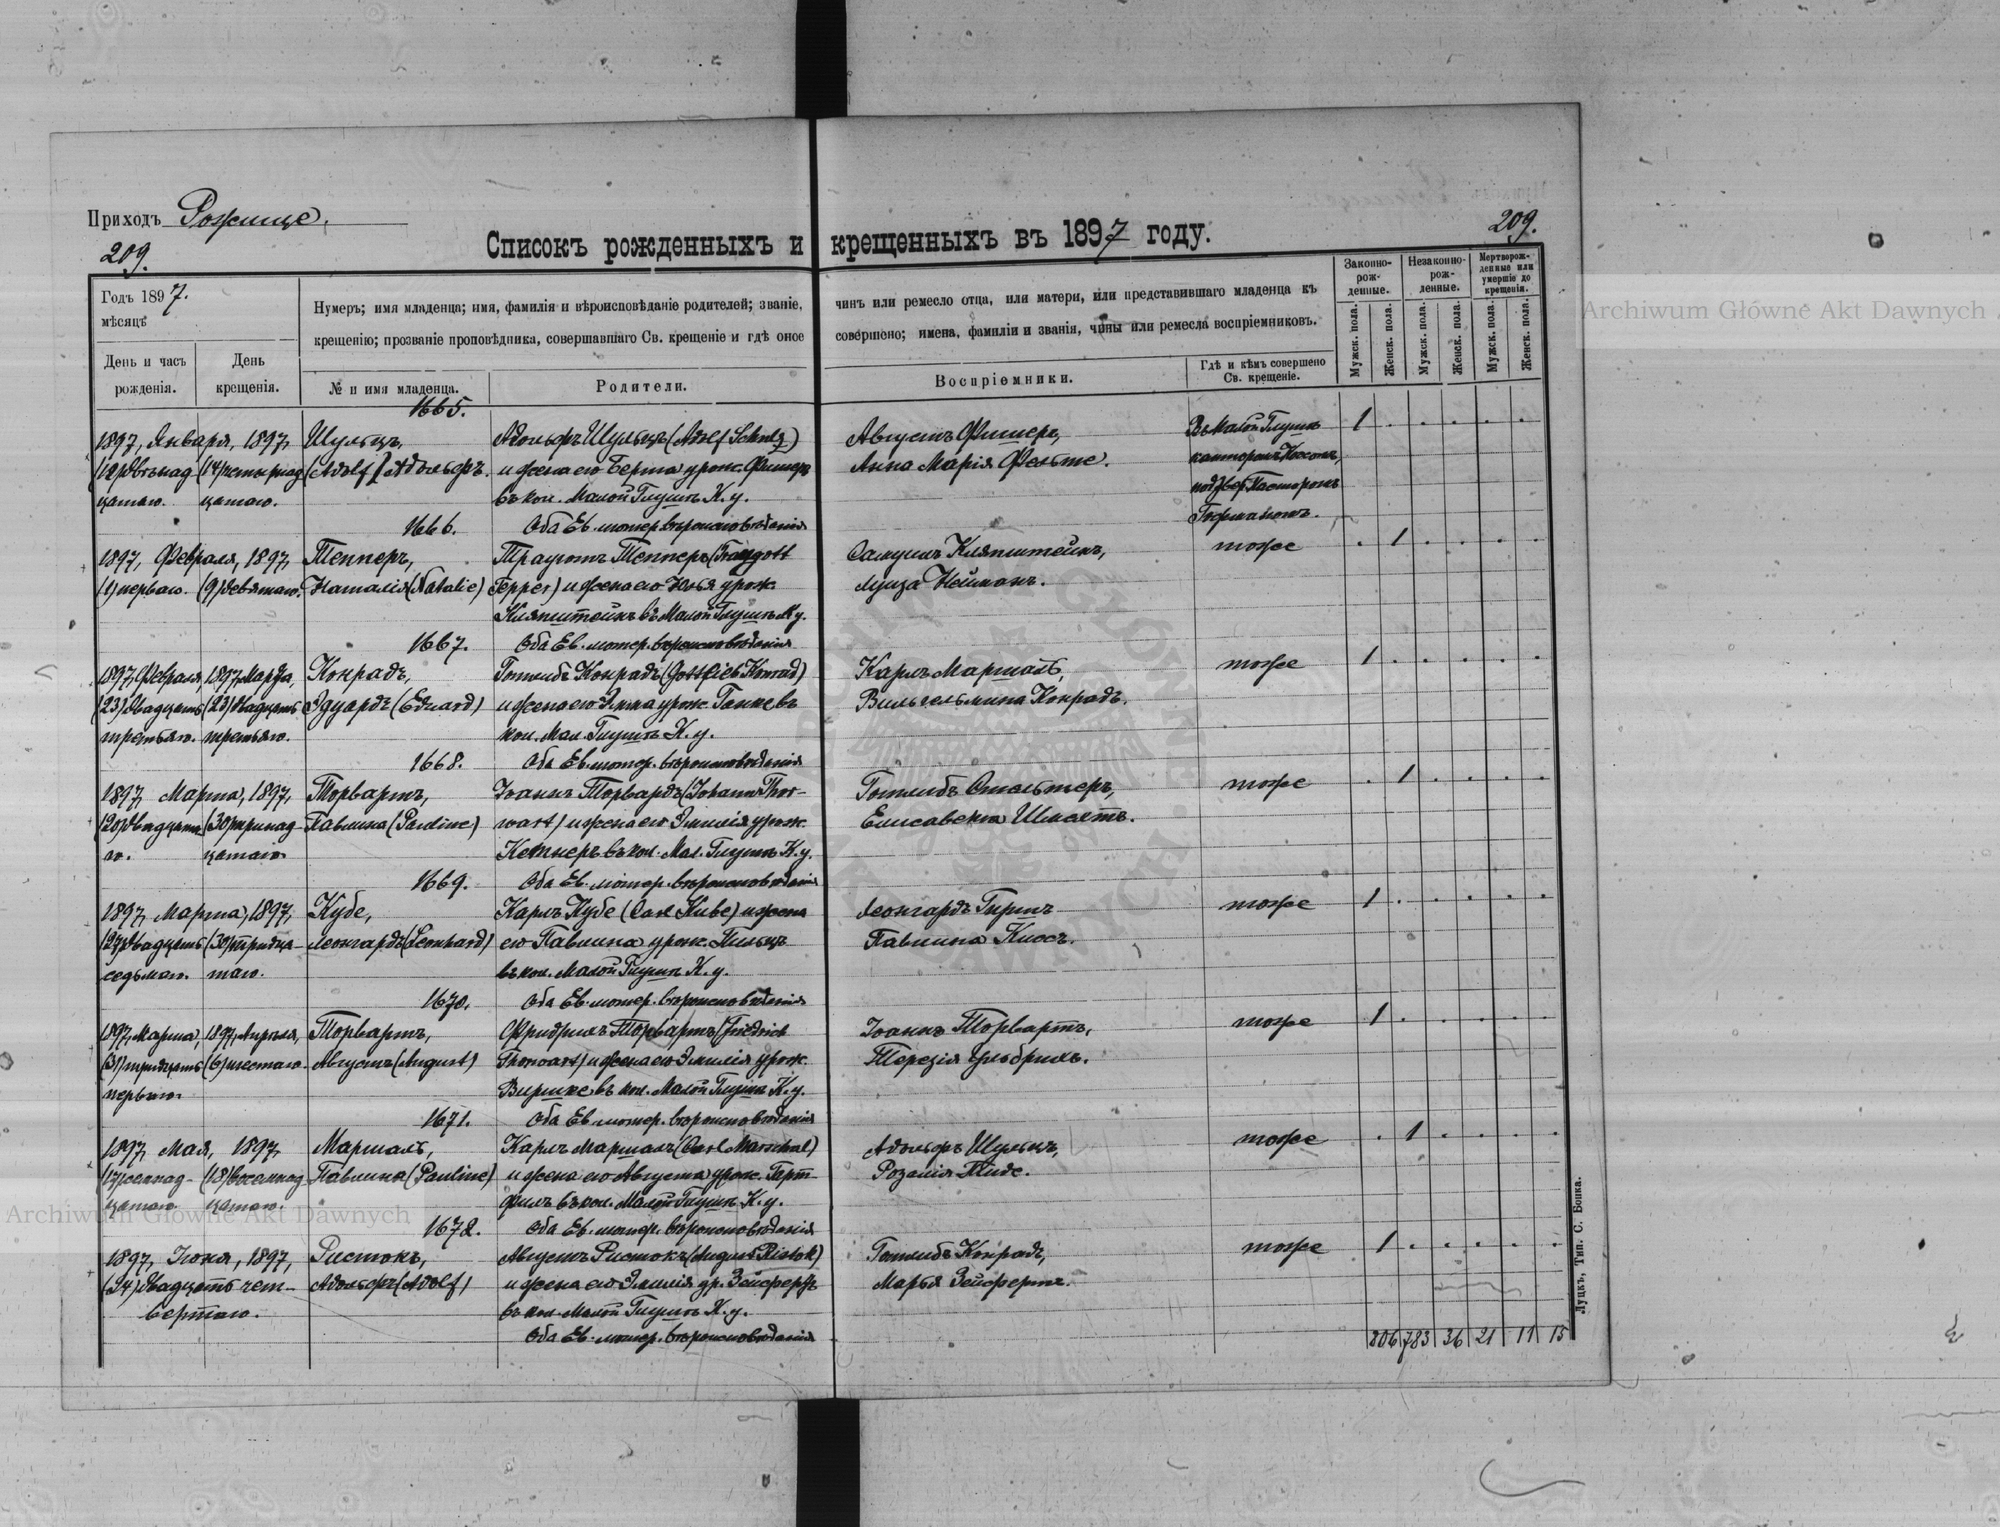 Приходъ Рожище.
209.
209.
Списокъ рожденныхъ и крещенныхъ въ 1897 году.
Годъ 1897.
мѣсяцъ
День и часъ рожденія.
День крещенія.
Нумеръ; имя младенца; имя, фамилія и вѣроисповѣданіе родителей; званіе, чинъ или ремесло отца, или матери, или представившаго младенца къ
крещенію; прозваніе проповѣдника, совершавшаго Св. крещеніе и гдѣ оное совершено; имена, фамиліи и званія, чины или ремесла воспріемниковъ.
№ и имя младенца.
Родители.
Воспріемники.
Гдѣ и кѣмъ совершено Св. крещеніе.
Законно-рож-денные.
Незаконно-рож-денные.
Мертворож-денные или умершіе до крещенія.
Мужск. пола.
Женск. пола.
Мужск. пола.
Женск. пола.
Мужск. пола.
Женск. пола.
1665.
1897, Января, 1897, Шульцъ, Адольфъ Шульцъ (Adolf Schulz) Августъ Фишеръ, Въ Малой Глушѣ 1
(12) двѣнад- (14) четырнад- (Adolf) Адольфъ. и жена его Берта урож. Фишеръ Анна Марія Фельте. канторомъ
цатаго. цатаго. въ кол. Малой Глушѣ К. у. подтвер. Пасторомъ
1666. Оба Ев. лютер. вѣроисповѣданія
1897, Февраля, 1897, Теппер, Траугот Теппер (Traugott Самуилъ Кляпштейнъ, тоже 1
(1) перваго. (9) девятаго. Наталія (Natalie) Tepper) и жена его урож. Луиза Нейманъ.
Кляпштейнъ въ Малой Глушѣ К. у.
1667. Оба Ев. лютер. вѣроисповѣданія
1897, Февраля, 1897, Марта, Конрадъ, Готлибъ Конрадъ (Gottlieb Konrad) Карлъ Маршалъ, тоже 1
(23) двадцать (23) двадцать Эдуардъ (Eduard) и жена его Эмма урож. Ганке въ Вильгельмина Конрадъ.
третьяго. третьяго. кол. Мал. Глушѣ К. у.
1668. Оба Ев. лютер. вѣроисповѣданія
1897, Марта, 1897, Торвартъ, Іоаннъ Торвардъ (Johann Thor- Готлибъ тоже 1
(20) двадцата- (30) тринад- Павлина (Pauline) wart) и жена его Эмилія урож. Елисавета Шмидтъ.
го. цатаго. Кетнеръ въ кол. Мал. Глушѣ К. у.
1669. Оба Ев. лютер. вѣроисповѣданія
1897, Марта, 1897, Кубе, Карлъ Кубе (Carl Kube) и жена Леонгардъ тоже 1
(27) двадцать (30) тридца- Леонгардъ (Leonhard) его Павлина урож. Пильцъ Павлина Клосъ.
седьмаго. таго. въ кол. Малой Глушѣ К. у.
1670. Оба Ев. лютер. вѣроисповѣданія
1897, Марта, 1897, Апрѣля, Торвартъ, Фридрихъ Торвартъ (Friedrich Іоаннъ Торвартъ, тоже 1
(31) тридцать (6) шестаго. Августъ (August) Thorwart) и жена его Эмилія урож. Терезія Ульбрихъ.
перваго. Виршке въ кол. Малой Глушѣ К. у.
1671. Оба Ев. лютер. вѣроисповѣданія
1897, Мая, 1897, Маршалъ, Карлъ Маршалъ (Carl Marschal) Адольфъ Шульцъ, тоже 1
(18) восемнад- Павлина (Pauline) и жена его Августа урож. Герт- Розалія Тидe.
цатаго. цатаго. филъ въ кол. Малой Глушѣ К. у.
1672. Оба Ев. лютер. вѣроисповѣданія
1897, Іюня, 1897, Ристокъ, Августъ Ристокъ (August Ristok) Готлибъ Конрадъ, тоже 1
(24) двадцать чет- Адольфъ (Adolf) и жена его Эмилія ур. Зейфертъ Марья Зейфертъ.
вертаго. въ кол. Малой Глушѣ К. у.
Оба Ев. лютер. вѣроисповѣданія
806 783 36 21 11 15
Луцкъ, Тип. С. Бонка.
Archiwum Główne Akt Dawnych
Archiwum Główne Akt Dawnych